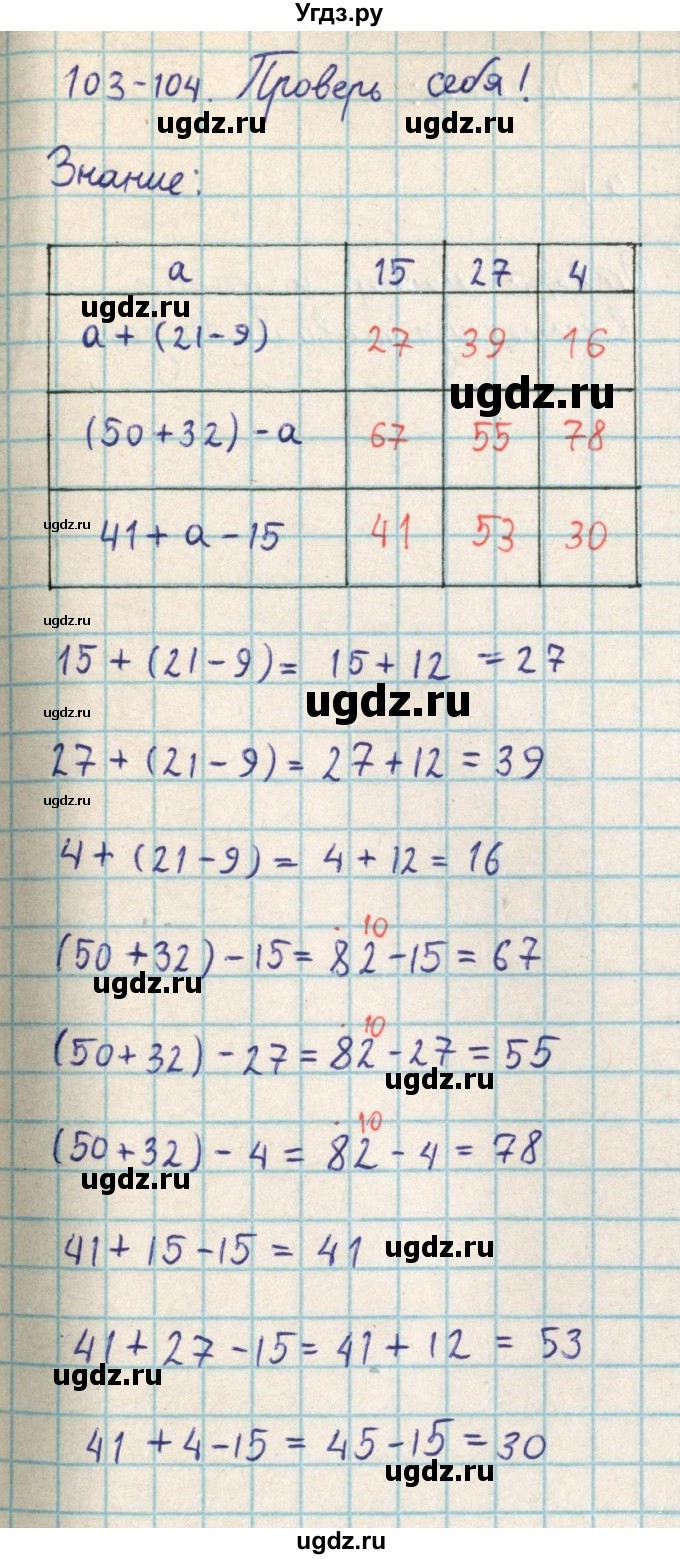 Угдз.ру
103-104. Проверь себя!
ugdz.ru ugdz.ru
Знание:
а 15 27 4
ugdz.ru
а + (21-9) 27 39 16
ugdz.ru
(50+32) - а 67 55 78
ugdz.ru
41 + а - 15 41 53 30
ugdz.ru
15 + (21-9) = 15 + 12 = 27
ugdz.ru
ugdz.ru
27 + (21-9) = 27 + 12 = 39
ugdz.ru
4 + (21-9) = 4 + 12 = 16
10
(50+32) - 15 = 82 - 15 = 67
ugdz.ru
10
(50+32) - 27 = 82 - 27 = 55
ugdz.ru
10
(50+32) - 4 = 82 - 4 = 78
ugdz.ru
41 + 15 - 15 = 41
ugdz.ru
41 + 27 - 15 = 41 + 12 = 53
ugdz.ru
41 + 4 - 15 = 45 - 15 = 30
ugdz.ru
ugdz.ru